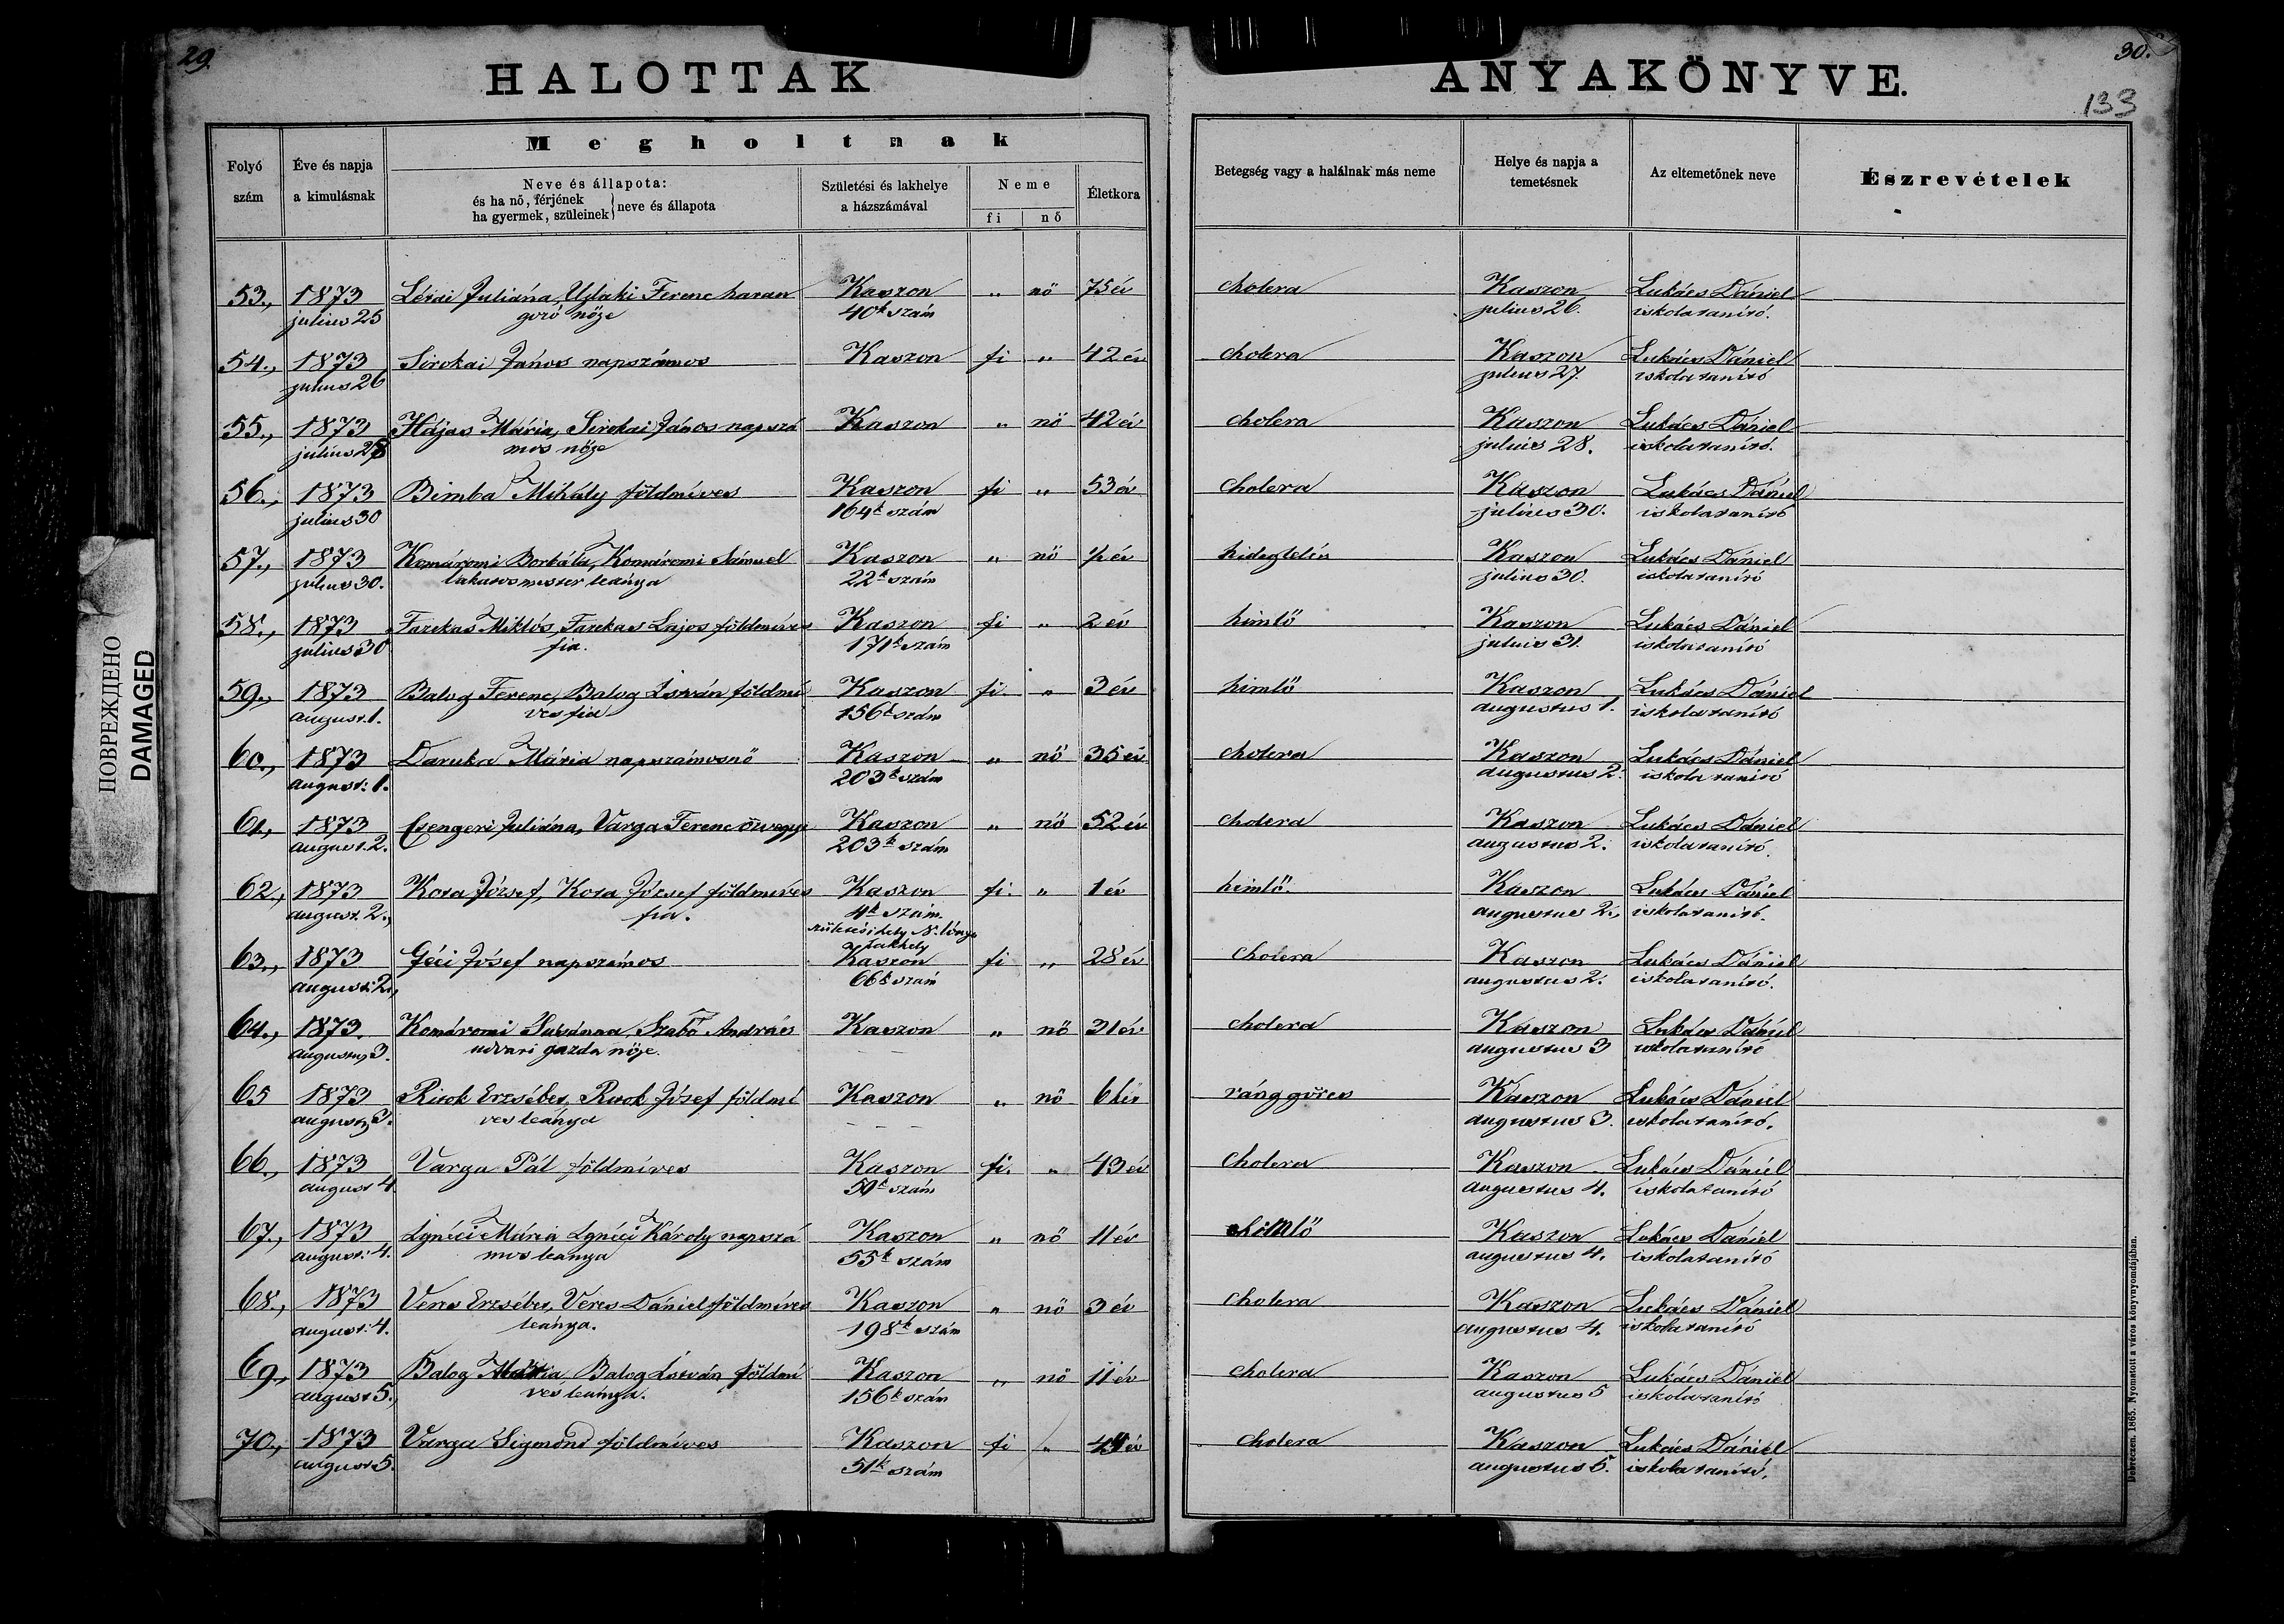 29.
30.
133
HALOTTAK
ANYAKÖNYVE.
Folyó szám
Éve és napja a kimulásnak
Megholtnak
Neve és állapota:
és ha nő, férjének
ha gyermek, szüleinek
neve és állapota
Születési és lakhelye a házszámával
Neme
fi
nő
Életkora
Betegség vagy a halálnak más neme
Helye és napja a temetésnek
Az eltemetőnek neve
Észrevételek
53., 1873 Juliána, Ujlaki Ferenc haran Kaszon „ nő 75 év cholera Kaszon Lukács Dániel
julius 25 gozó nője 40k szám julius 26. iskolatanító.
54., 1873 Sirokai János napszámos Kaszon fi „ 42 év cholera Kaszon Lukács Dániel
julius 26 julius 27. iskolatanító
55., 1873 Hájas Mária, Sirokai János napszá Kaszon „ nő 42 év cholera Kaszon Lukács Dániel
julius mos nője julius 28. iskolatanító.
56., 1873 Bimba Mihály földmíves Kaszon fi „ 53 év cholera Kaszon Lukács Dániel
julius 30 164k szám julius 30. iskolatanító
57., 1873 Komáromi Borbála, Komáromi Sámuel Kaszon „ nő év hideglelés Kaszon Lukács Dániel
julius 30. lakatosmester leánya 22k szám julius 30. iskolatanító
58., 1873 Fazekas Miklós, Fazekas Lajos földmíves Kaszon fi „ 2 év himlő Kaszon Lukács Dániel
julius 30 fia. 171k szám julius 31. iskolatanító
59., 1873 Balog Ferenc, Balog István földmí Kaszon fi „ 3 év himlő Kaszon Lukács Dániel
august. 1. ves fia 156k szám augustus 1. iskolatanító
60., 1873 Daruka Mária napszámosnő Kaszon „ nő 35 év cholera Kaszon Lukács Dániel
august: 1. 203k szám augustus 2. iskola tanító
61., 1873 Csengeri Juliána, Varga Ferenc özvegye Kaszon „ nő 52 év cholera Kaszon Lukács Dániel
august. 2. 203k szám augustus 2. iskolatanító.
62., 1873 Kosa József, Kosa József földmíves Kaszon fi. „ 1 év himlő. Kaszon Lukács Dániel
august. 2., fia. 4k szám. augustus 2., iskolatanító.
születési hely N. lónya
lakhely
63., 1873 Géci József napszámos Kaszon fi „ 28 év cholera Kaszon Lukács Dániel
august: 2., 66k szám augustus 2. iskolatanító.
64., 1873. Komáromi Susánna, Szabó András Kaszon „ nő 31 év cholera Kaszon Lukács Dániel
3. udvari gazda nője. augustus 3 iskolatanító
65 1873 Erzsébet, József földmí Kaszon „ nő ránggörcs Kaszon Lukács Dániel
3. ves leánya augustus 3. iskolatanító.
66., 1873 Varga Pál földmíves Kaszon fi. „ 43 év cholera Kaszon Lukács Dániel
august 4. 50k szám augustus 4. iskolatanító
67., 1873 Ignéci Mária Ignéci Károly napszá Kaszon „ nő 11 év himlő Kaszon Lukács Dániel
august: 4. mos leanya 55k szám augustus 4. iskolatanító
68., 1873 Veres Erzsébet, Veres Dániel földmíves Kaszon „ nő 3 év cholera Kaszon Lukács Dániel
august: 4. leánya. 198k szám augustus 4. iskolatanító
69., 1873 Balog Mária, Balog István földmí Kaszon „ nő 11 év cholera Kaszon Lukács Dániel
august 5., ves leanya. 156k szám augustus 5 iskolatanító
70., 1873 Varga Sigmond földmíves Kaszon fi „ év cholera Kaszon Lukács Dániel
august 5. 51k szám augustus 5. iskolatanító.
Debreczen. 1865. Nyomatott a város könyvnyomdájában.
ПОВРЕЖДЕНО
DAMAGED